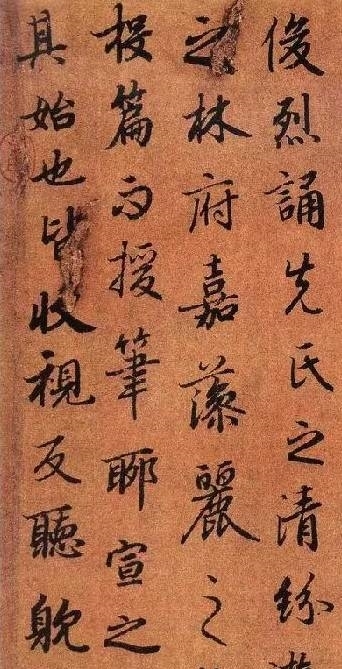 俊烈誦先氏之清紛
之林府嘉藻麗之
投篇而援筆聊宣之
其始也皆收視反聽躭